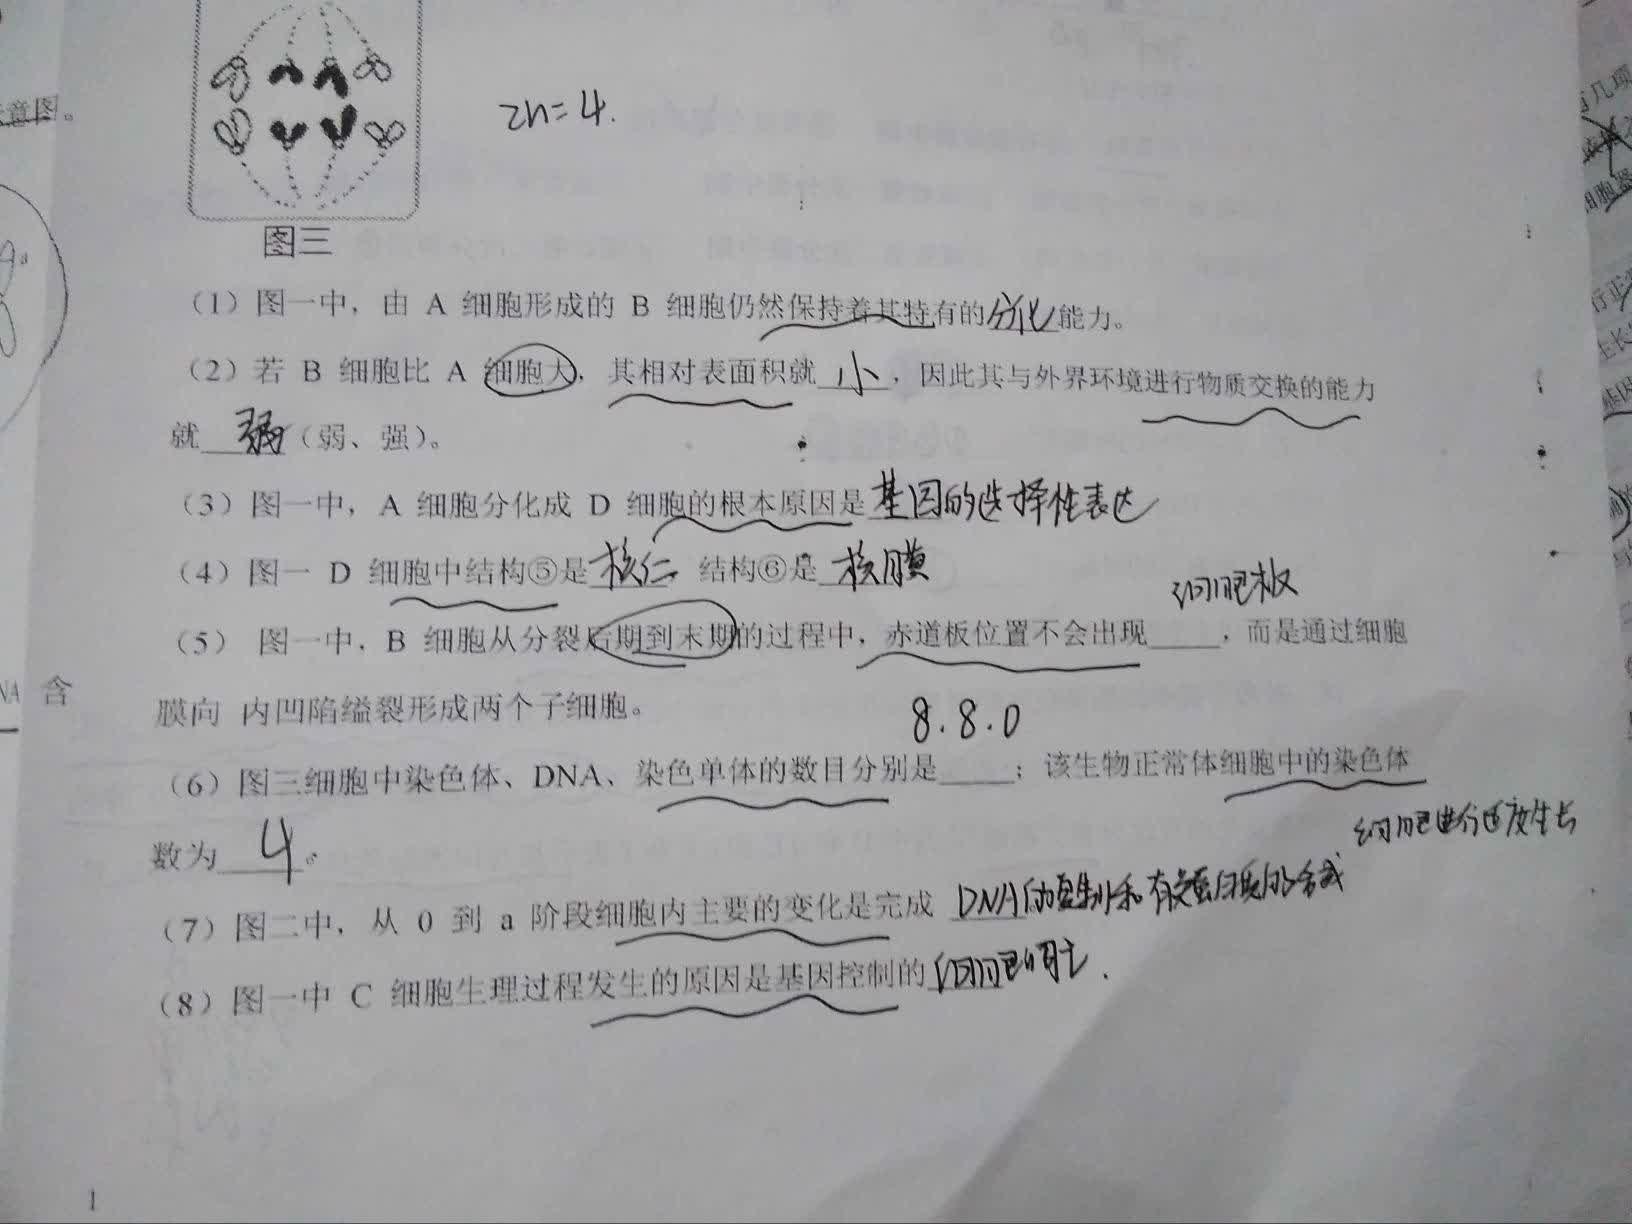 意图。
2n=4.
图三
（1）图一中，由 A 细胞形成的 B 细胞仍然保持着其特有的分化能力。
（2）若 B 细胞比 A 细胞大，其相对表面积就 小 ，因此其与外界环境进行物质交换的能力
就 弱 （弱、强）。
（3）图一中，A 细胞分化成 D 细胞的根本原因是基因的选择性表达
（4）图一 D 细胞中结构⑤是 核仁 结构⑥是 核膜
细胞板
（5） 图一中，B 细胞从分裂后期到末期的过程中，赤道板位置不会出现____，而是通过细胞
NA 含
膜向 内凹陷缢裂形成两个子细胞。
8.8.0
（6）图三细胞中染色体、DNA、染色单体的数目分别是____；该生物正常体细胞中的染色体
数为 4 。
细胞进行适度生长
（7）图二中，从 0 到 a 阶段细胞内主要的变化是完成 DNA的复制和有关蛋白质的合成
（8）图一中 C 细胞生理过程发生的原因是基因控制的细胞凋亡.
1
几项
细胞器
行正
生长
基因